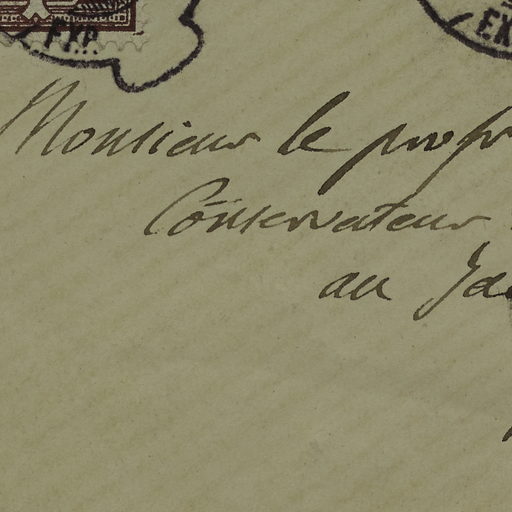 EXP.
EX
Monsieur le prof
Conservateur
au Ja